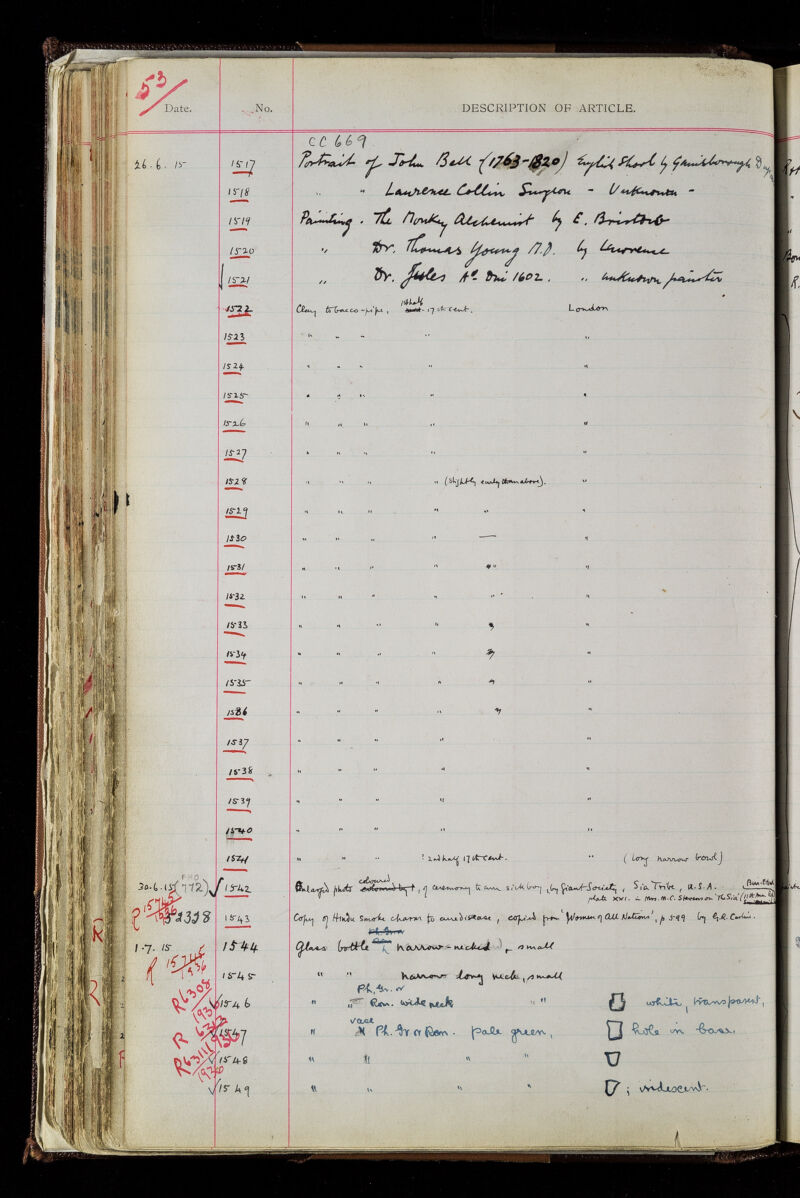 53
Date. No. DESCRIPTION OF ARTICLE.
CC 669
26.6.15 1517 Portrait of John Bell (1763-1820) English School by Gainsborough
1518 " " Laurence Collin Surgeon - Unknown -
1519 Painting. The Monkey Alchemist by E. Bristow
1520 " Dr. Thomas Young M.D. by Lawrence
1521 " Dr. Jules Aº Dni 1602. " unknown painter
1522 Clay tobacco-pipe, 1st half 17th cent. London
1523 " " " "
1524 " " " " "
1525 " " " " "
1526 " " " " "
1527 " " " " "
1528 " " " " (slightly early than above). "
1529 " " " " " "
1530 " " " " — "
1531 " " " " " "
1532 " " " " " "
1533 " " " " " "
1534 " " " " " "
1535 " " " " " "
1536 " " " " " "
1537 " " " " "
1538 " " " " "
1539 " " " " "
1540 " " " " "
1541 " " " ? 2nd half 17th cent. " (long narrow bowl)
30.6.15 (772) 1542 Enlarged photo coloured, of ceremony to cure sick boy, by Giant Society, Sia Tribe, U.S.A.
plate XVI. in Mrs. M.C. Stevenson on "The Sia"
R 15745/1936 2338 1543 Copy of Hindu smoke charm to cure disease, copied from 'Women of All Nations', p 599 by
1.7.15 1544 Glass bottle narrow-necked, small
R 15746/1936 1545 " " narrow long neck, small
Ph, Gr. or
R6308/1936 1546 " " Rom. wide neck " " white, transparent,
vase
R 6313/1936 1547 " Ph. Gr or Rom. pale green, hole in base,
R6311/1936 1548 " " " "
1549 " " " " ; iridescent.